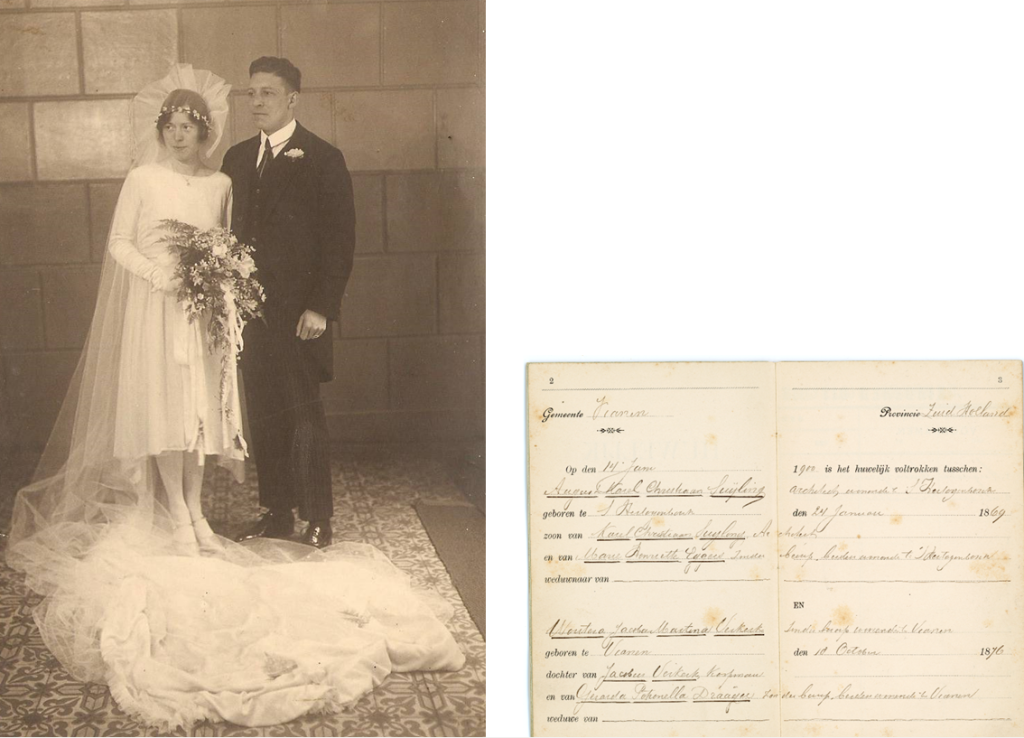 2 3
Gemeente Vianen Provincie Zuid Holland
Op den 14 Juni 1900 is het huwelijk voltrokken tusschen:
August Karel Christiaan Suijling architect, wonende te 's Hertogenbosch
geboren te 's Hertogenbosch den 24 Januari 1869
zoon van Karel Christiaan Suijling, Architect
en van Maria Henriette Eggers, zonder beroep, beiden wonende te 's Hertogenbosch
weduwnaar van
EN
Jacoba Martina Verkerk zonder beroep wonende te Vianen
geboren te Vianen den 10 October 1876
dochter van Jacobus Verkerk Koopman
en van Gerarda Petronella zonder beroep, beiden wonende te Vianen
weduwe van